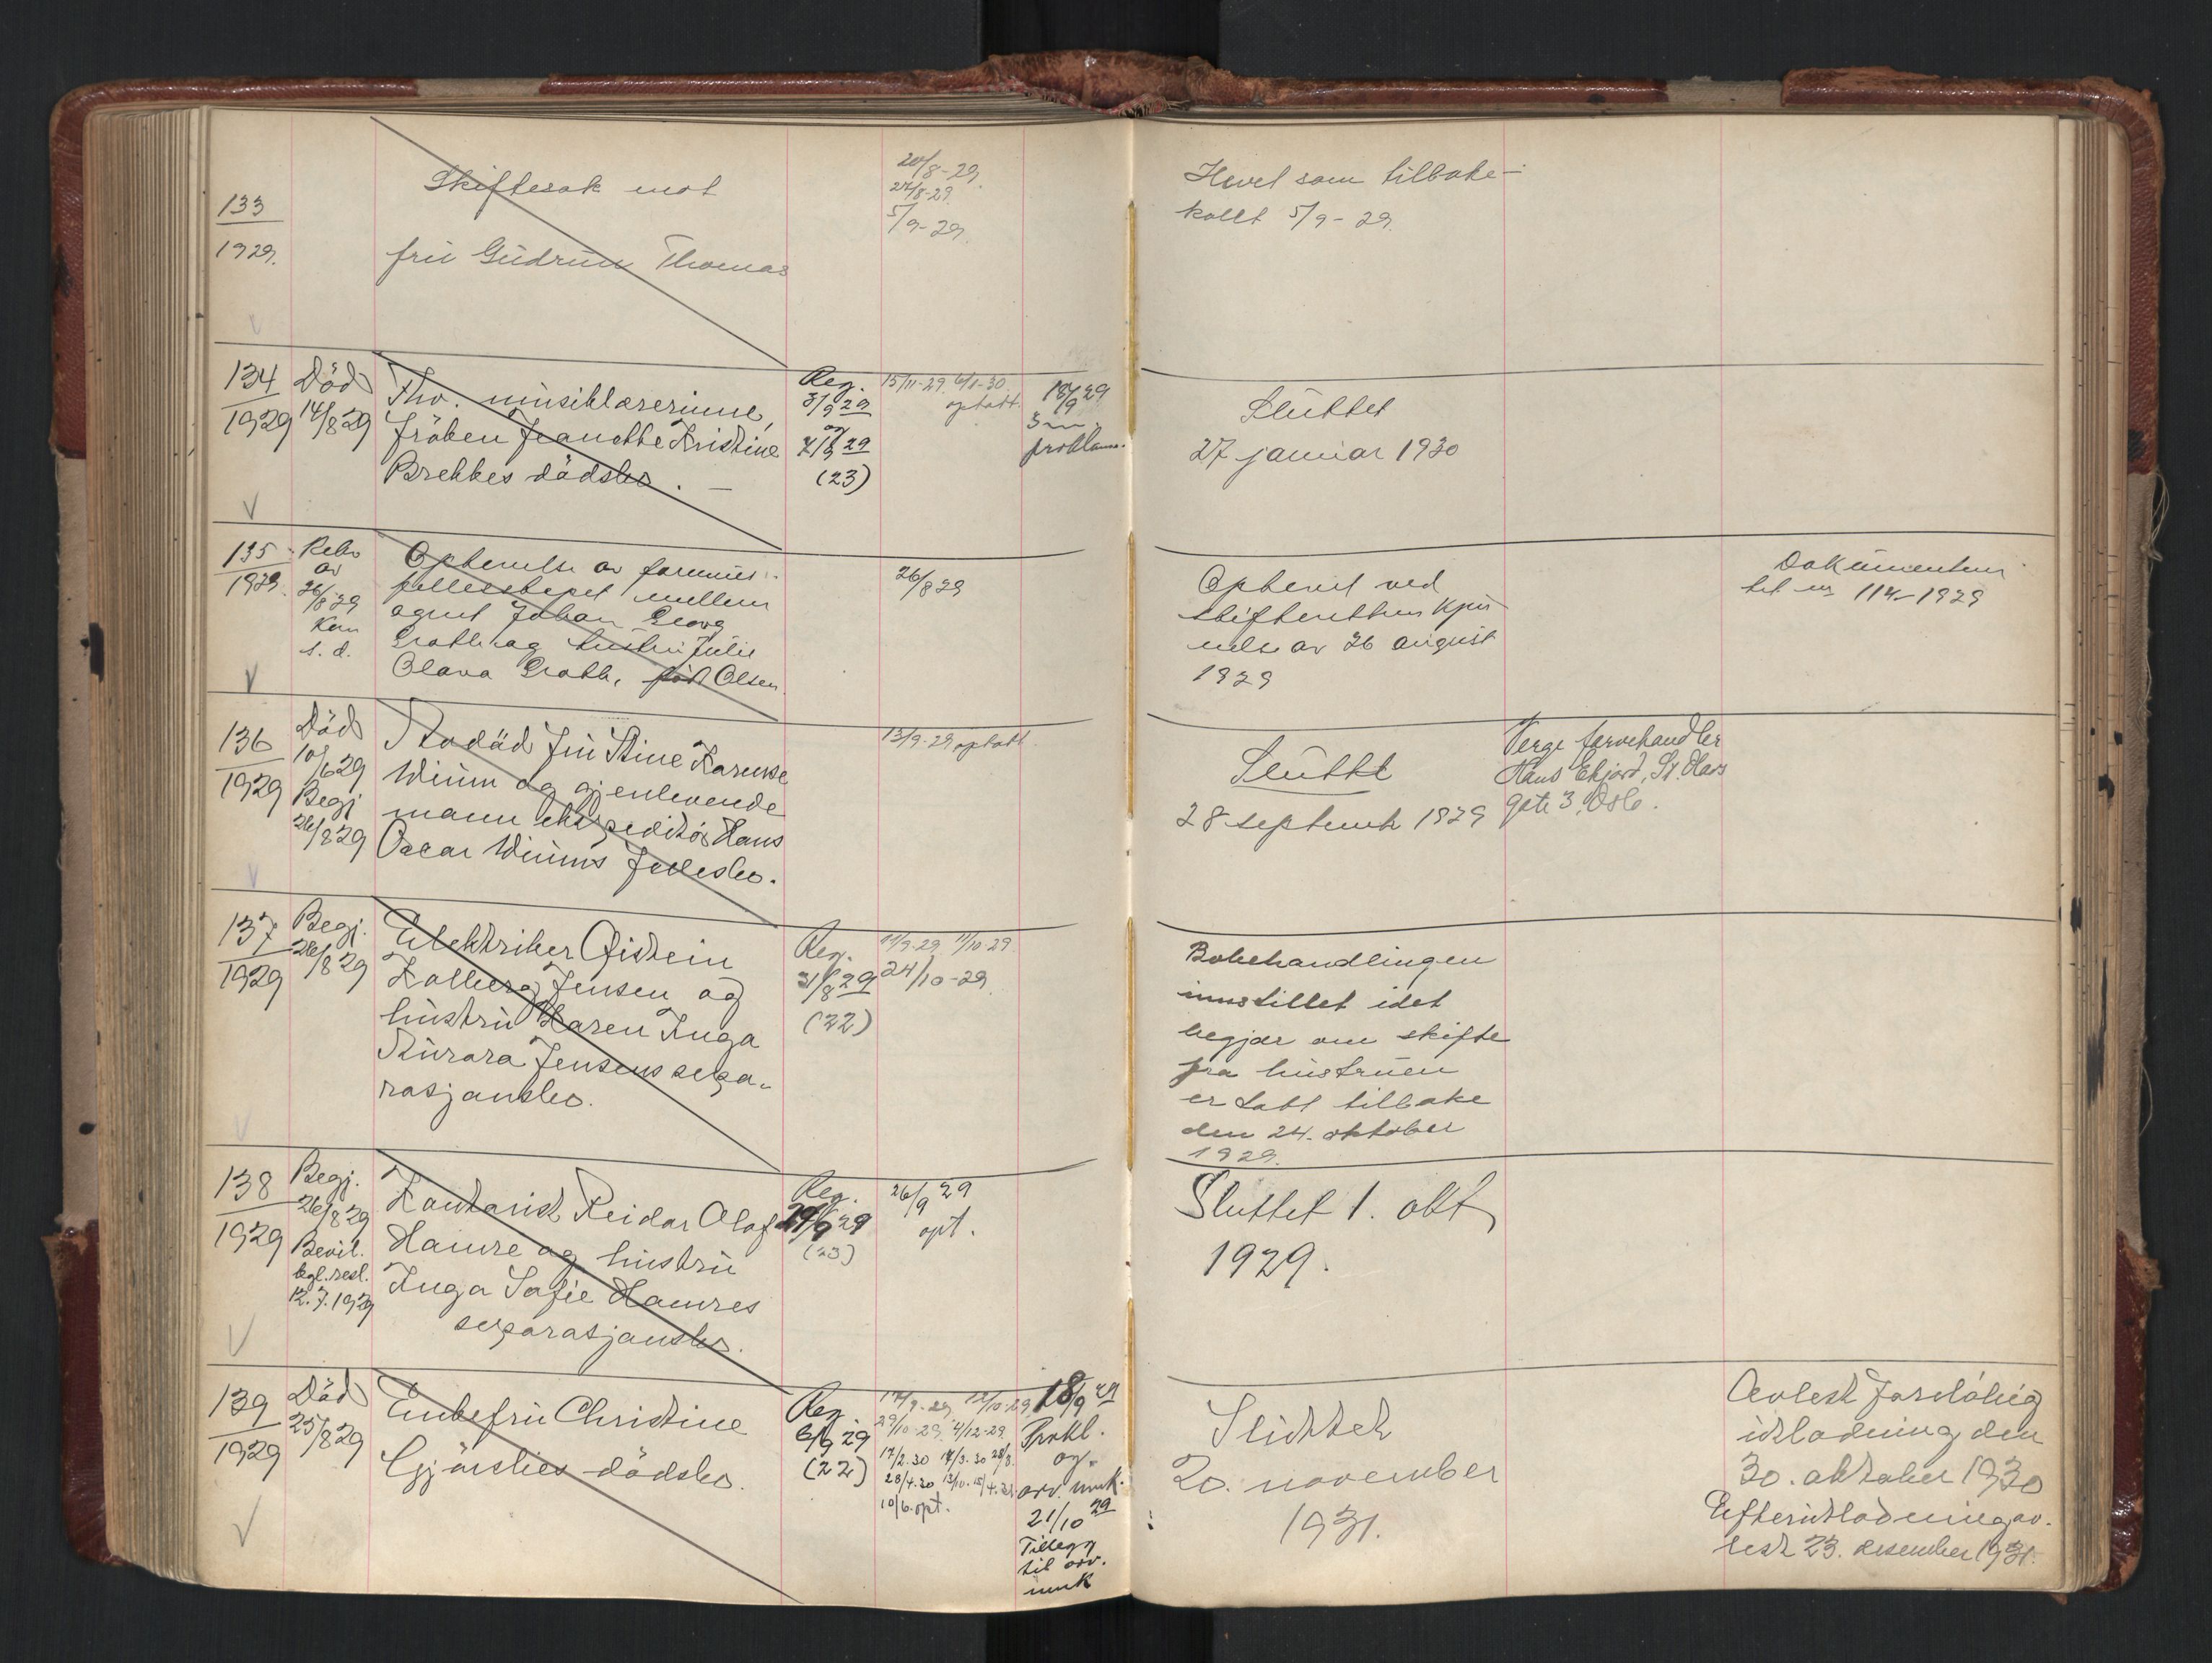 133
1929.
Skiftesak mot
fru Gudrun Thomas
20/8-29.
27/8-29.
5/9-29.
Hevet som tilbake-
kallt 5/9-29.
134
1929
Död
14/8 29
Fhv. musiklærerinne,
fröken Jeanette Kristine
Brekkes dödsbo. —
Reg.
3/9 29
og
(23)
15/11-29. 6/1-30.
optatt.
18/9 29
3 m.
proklama.
Sluttet
27 januar 1930
135
1929.
Rekv
av
26/8 29
Kjen
s. d.
Ophevelse av formues-
fellesskapet mellem
agent Johan Georg
Grothe og hustru Julie
Olava Grothe, født Olsen.
26/8 29
Ophevet ved
skifterettens kjen
nelse av 26 august
1929
Dokumenter
til nr 114-1929
136
1929
Död
10/6 29
Begj
26/8 29
Avdöd fru Stine
Wium og gjenlevende
mann ekspeditör Hans
Oscar Wiums fellesbo.
13/9-29 optatt.
Sluttet
28 septemb 1929
Verge farvehandler
Hans Ekjord, St. Olavs
gate 3, Oslo.
137
1929
Begj.
26/8 29
Elektriker Øistein
Kolberg Jensen og
hustru Karen Inga
Aurora Jensens sepa-
rasjonsbo.
Reg.
31/8 29
(22)
11/9-29 11/10-29.
24/10-29.
Bobehandlingen
innstillet idet
begjær om skifte
fra hustruen
er tatt tilbake
den 24. oktober
1929.
138
1929
Begj.
26/8 29
Bevil.
kgl. resl.
12.7.1929
Kontorist Reidar Olaf
Hamre og hustru
Inga Sofie Hamres
separasjonsbo.
Reg.
(23)
26/9 29
opt.
Sluttet 1. okt
1929.
139
1929
Död
25/8 29
Enkefru Christine
Gjörslies dödsbo.
Reg.
6/9 29
(22)
17/9-29. 12/10-29.
29/10-29. 4/12-29.
17/2.30 17/3.30 28/3.
28/4.30 13/10. 15/4.31
10/6. opt.
18/9 29
Prokl.
og
arv. innk.
21/10 29
Tillegg
til arv.
innk
Sluttet
20. november
1931.
Avlest foreløbig
utlodning den
30. oktober 1930
Efterutlodning av-
lest 23. desember 1931.